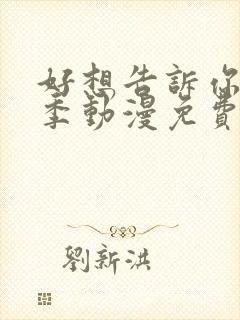 好想告訴你
季動漫免費
劉新洪